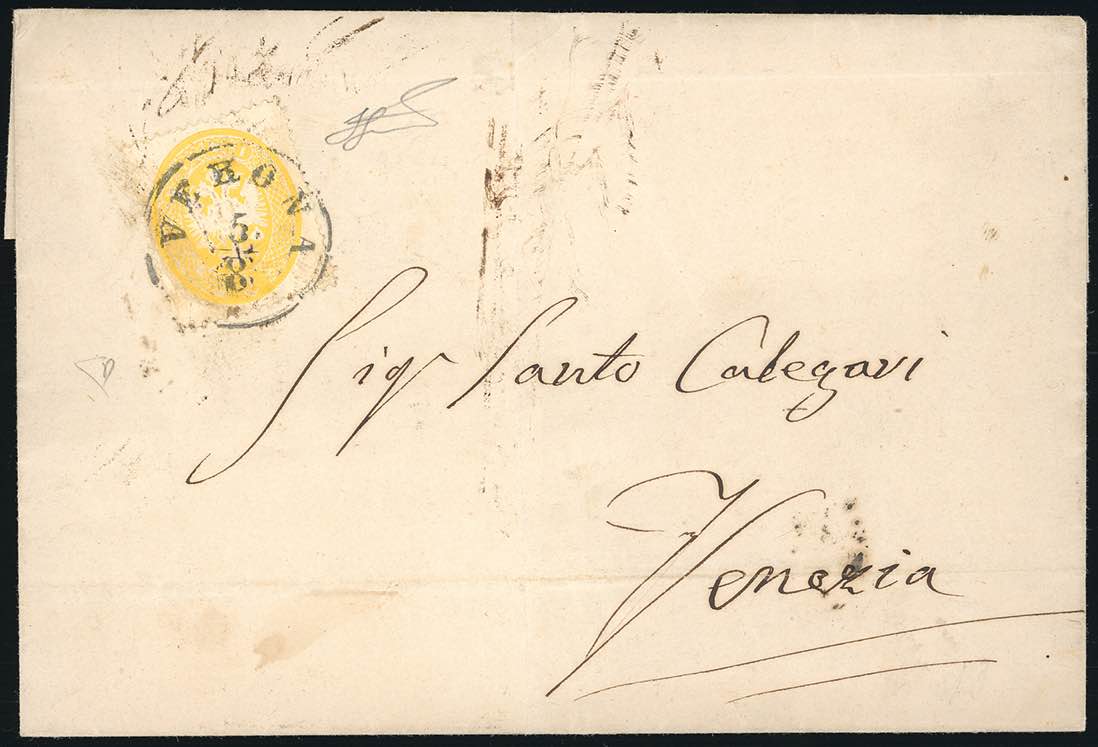 VERONA
5.
8.
Sigr Santo Calegari
Venezia